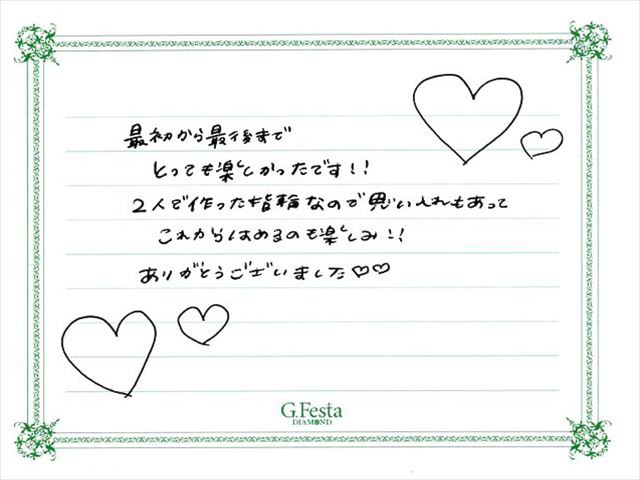 最初から最後まで
とっても楽しかったです!!
2人で作った指輪なので思い入れもあって
これからはめるのも楽しみ!!
ありがとうございました♡♡
G.Festa
DIAMOND